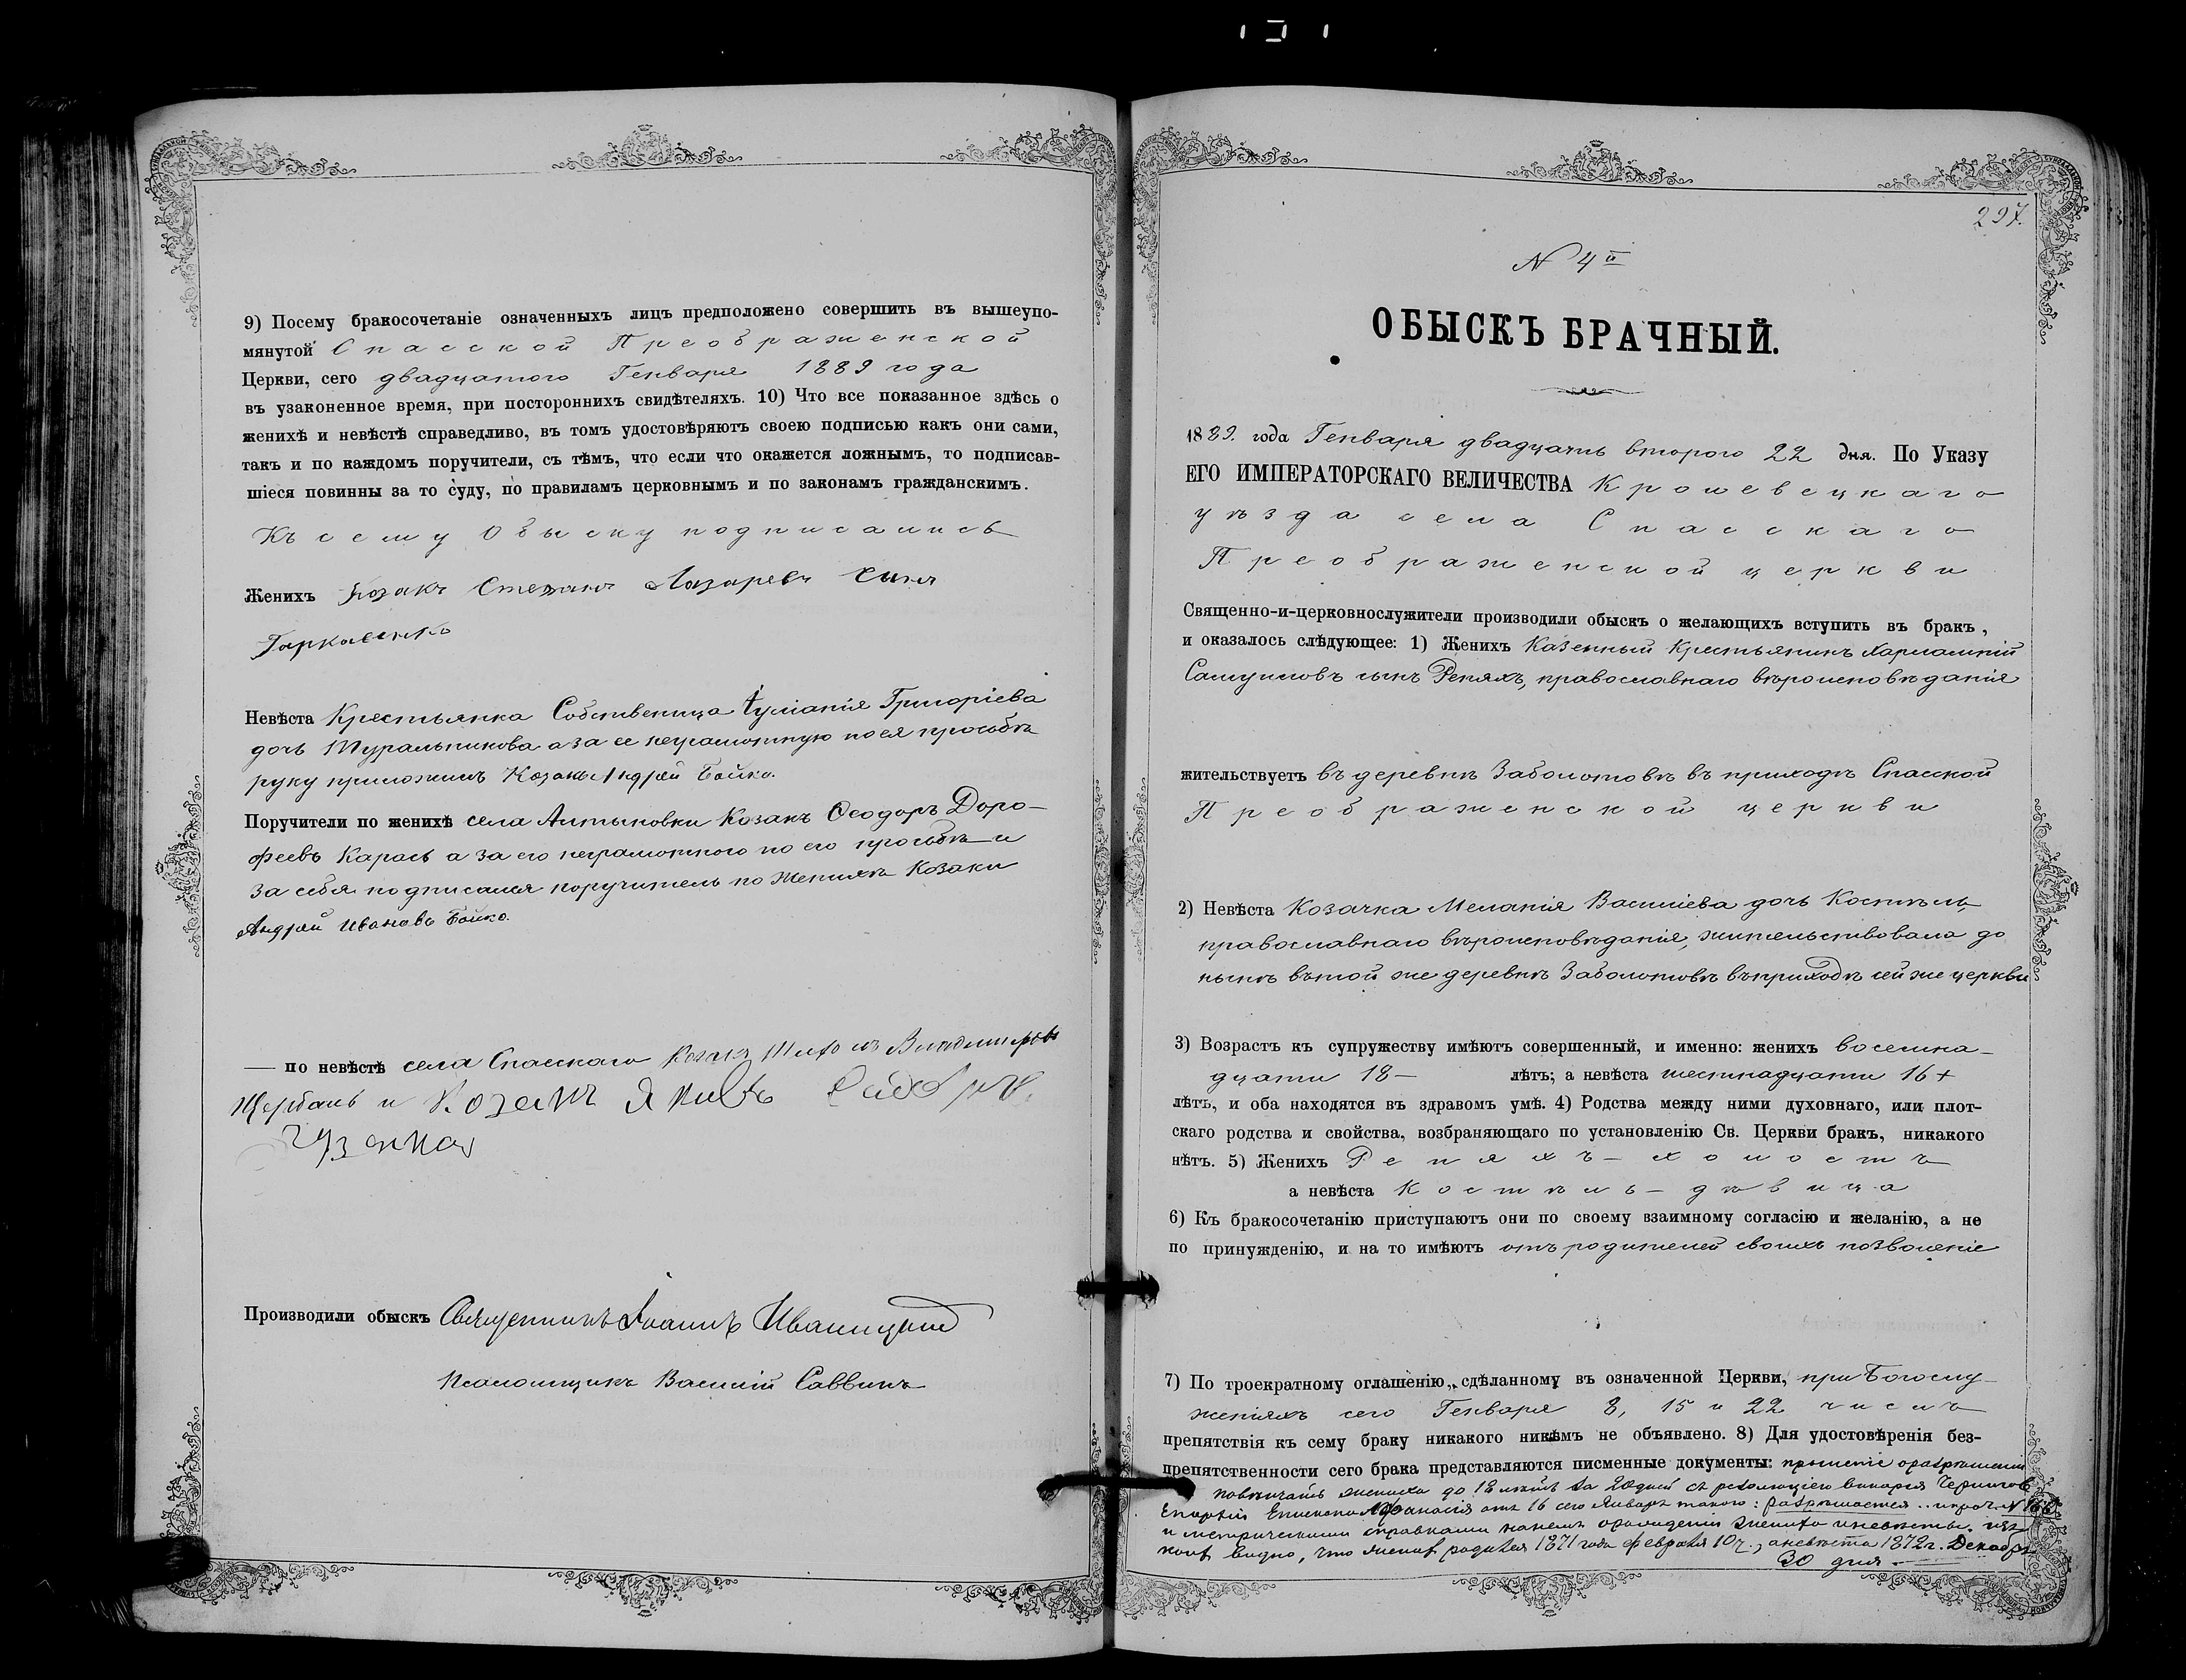 9) Посему бракосочетаніе означенныхъ лицъ предположено совершить въ вышеупо-
мянутой Спасской Преображенской
Церкви, сего двадцатого Генваря 1889 года
въ узаконенное время, при постороннихъ свидѣтеляхъ. 10) Что все показанное здѣсь о
женихѣ и невѣстѣ справедливо, въ томъ удостовѣряютъ своею подписью какъ они сами,
такъ и по каждомъ поручители, съ тѣмъ, что если что окажется ложнымъ, то подписав-
шіеся повинны за то суду, по правиламъ церковнымъ и по законамъ гражданскимъ.
Къ сему Обыску подписались
Женихъ Козакъ Стефанъ Лазаревъ сынъ
Невѣста Крестьянка Собственица Іуліанія Григоріева
дочь Туральникова а за ее неграмотную по ея прозьбѣ
руку приложилъ Козакъ Андрей Бойко.
Поручители по женихѣ села Алтыновки Козакъ Ѳеодоръ Доро-
феевъ Карась а за его неграмотного по его прозьбѣ и
за себя подписался поручитель по женихѣ Козакъ
Андрей Ивановъ Бойко.
— по невѣстѣ села Спасскаго Козакъ Владимировъ
Щербань и Козакъ Яковъ
Производили обыскъ Священникъ Іоаннъ Иваницкій
Псаломщикъ Василій Саввинъ
297.
N 4й
ОБЫСКЪ БРАЧНЫЙ.
1889. года Генваря двадцать второго 22 дня. По Указу
ЕГО ИМПЕРАТОРСКАГО ВЕЛИЧЕСТВА Кролевецкаго
уѣзда села Спасскаго
Преображенской церкви
Священно-и-церковнослужители производили обыскъ о желающихъ вступить въ бракъ,
и оказалось слѣдующее: 1) Женихъ Казенный Крестьянинъ Харлампій
Самуиловъ сынъ Репяхъ, православнаго вѣроисповѣданія
жительствуетъ въ деревнѣ Заболотовѣ въ приходѣ Спасской
Преображенской церкви
2) Невѣста Козачка Меланія Василіева дочь Костѣль,
православнаго вѣроисповѣданія, жительствовала до
нынѣ въ той же деревнѣ Заболотовѣ въ приходѣ сей же церкви
3) Возрастъ къ супружеству имѣютъ совершенный, и именно: женихъ восемна-
дцати 18 — лѣтъ; а невѣста шестнадцати 16 +
лѣтъ, и оба находятся въ здравомъ умѣ. 4) Родства между ними духовнаго, или плот-
скаго родства и свойства, возбраняющаго по установленію Св. Церкви бракъ, никакого
нѣтъ. 5) Женихъ Репяхъ — холостъ
а невѣста Костѣль — дѣвица
6) Къ бракосочетанію приступаютъ они по своему взаимному согласію и желанію, а не
по принужденію, и на то имѣютъ отъ родителей своихъ позволеніе
7) По троекратному оглашенію, сдѣланному въ означенной Церкви, при Богослу-
женіяхъ сего Генваря 8, 15 и 22 числъ
препятствія къ сему браку никакого никѣмъ не объявлено. 8) Для удостовѣренія без-
препятственности сего брака представляются писменные документы: прошеніе о разрѣшеніи
повѣнчать жениха до 18 лѣтъ за 20 дней съ резолюціею викарія Чернигов.
Епархіи Епископа Афанасія отъ 16 сего Января такою: разрѣшается
и метрическими справками о рожденіи жениха и невѣсты. Из
коихъ видно, что женихъ родился 1871 года февраля 10 ч., а невѣста 1872 г. Декабря
30 дня.